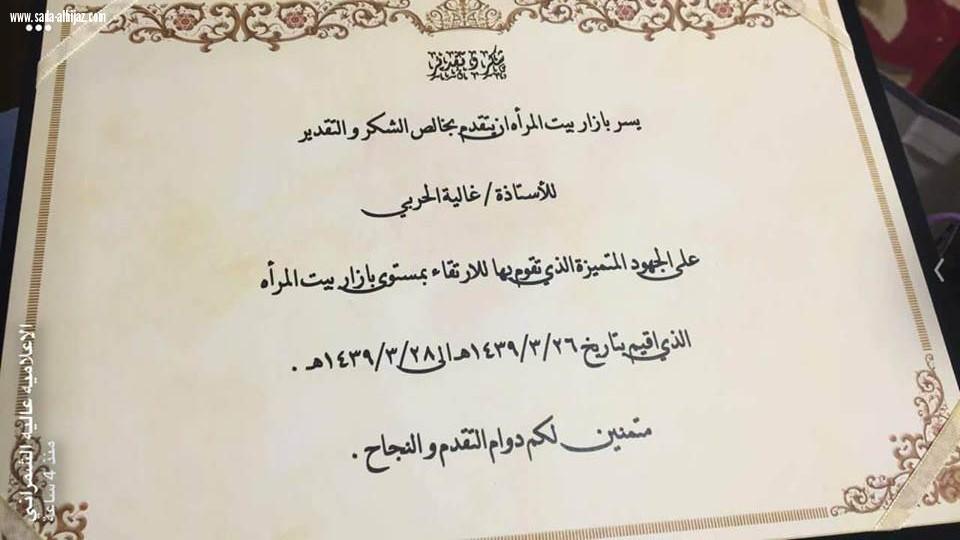 www.sada-alhijaz.com
شكر و تقدير
يسر بازار بيت المرأه ان يتقدم بخالص الشكر و التقدير
للأستاذة / غالية الحربي
على الجهود المتميزة الذي تقوم بها للارتقاء بمستوى بازار بيت المرأه
الذي اقيم بتاريخ ١٤٣٩/٣/٢٦هـ الى ١٤٣٩/٣/٢٨هـ .
متمنين لكم دوام التقدم و النجاح .
الإعلامية عالية الشمراني
منذ 4 ساعة